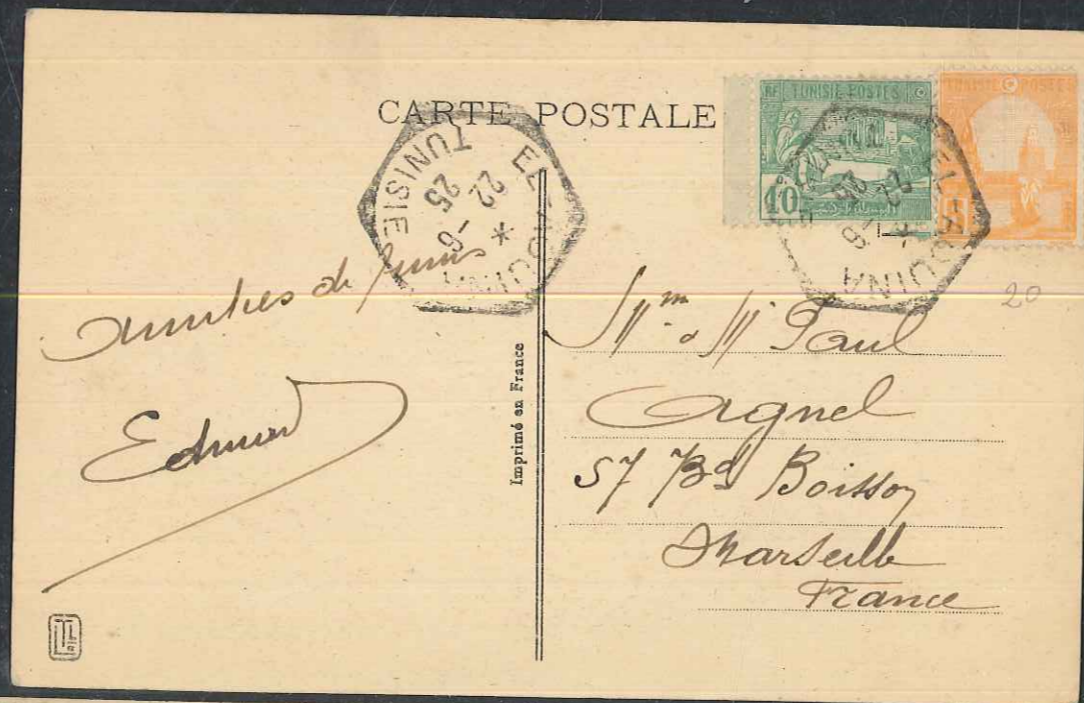 CARTE POSTALE
RF TUNISIE POSTES
10
TUNISIE POSTES
EL-AOUINA
22 * -6
25
TUNISIE
EL-AOUINA
20
Amitiés de Tunis
Edmond
Imprimé en France
Mm & M Paul
Agnel
57 Bd Boisson
Marseille
France
LL